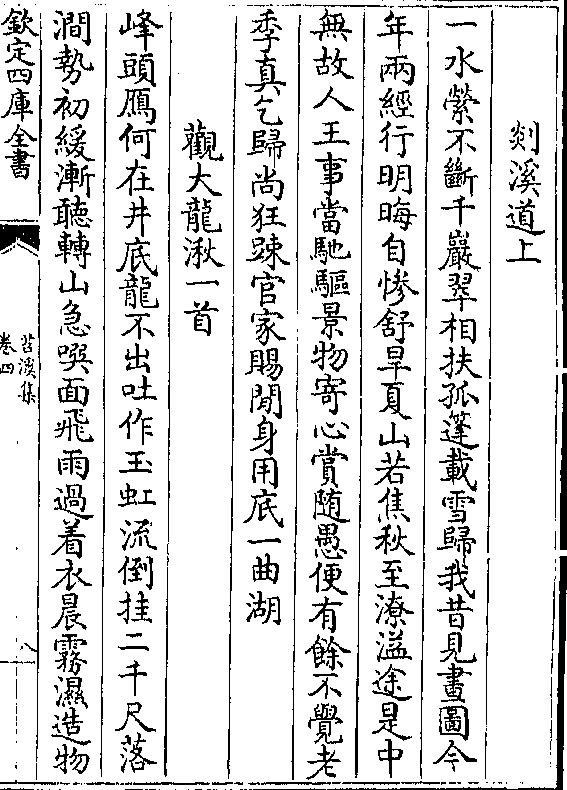 剡溪道上
一水縈不斷千巖翠相扶孤篷載雪歸我昔見畫圖今
年兩經行明晦自慘舒旱夏山若焦秋至潦溢途是中
無故人王事當馳驅景物寄心賞随愚便有餘不覺老
季真乞歸尚狂踈官家賜閒身用底一曲湖
觀大龍湫一首
峰頭鴈何在井底龍不出吐作玉虹流倒挂二千尺落
澗勢初緩漸聽轉山急噀面飛雨過着衣晨霧濕造物
欽定四庫全書
苕溪集
卷四
八